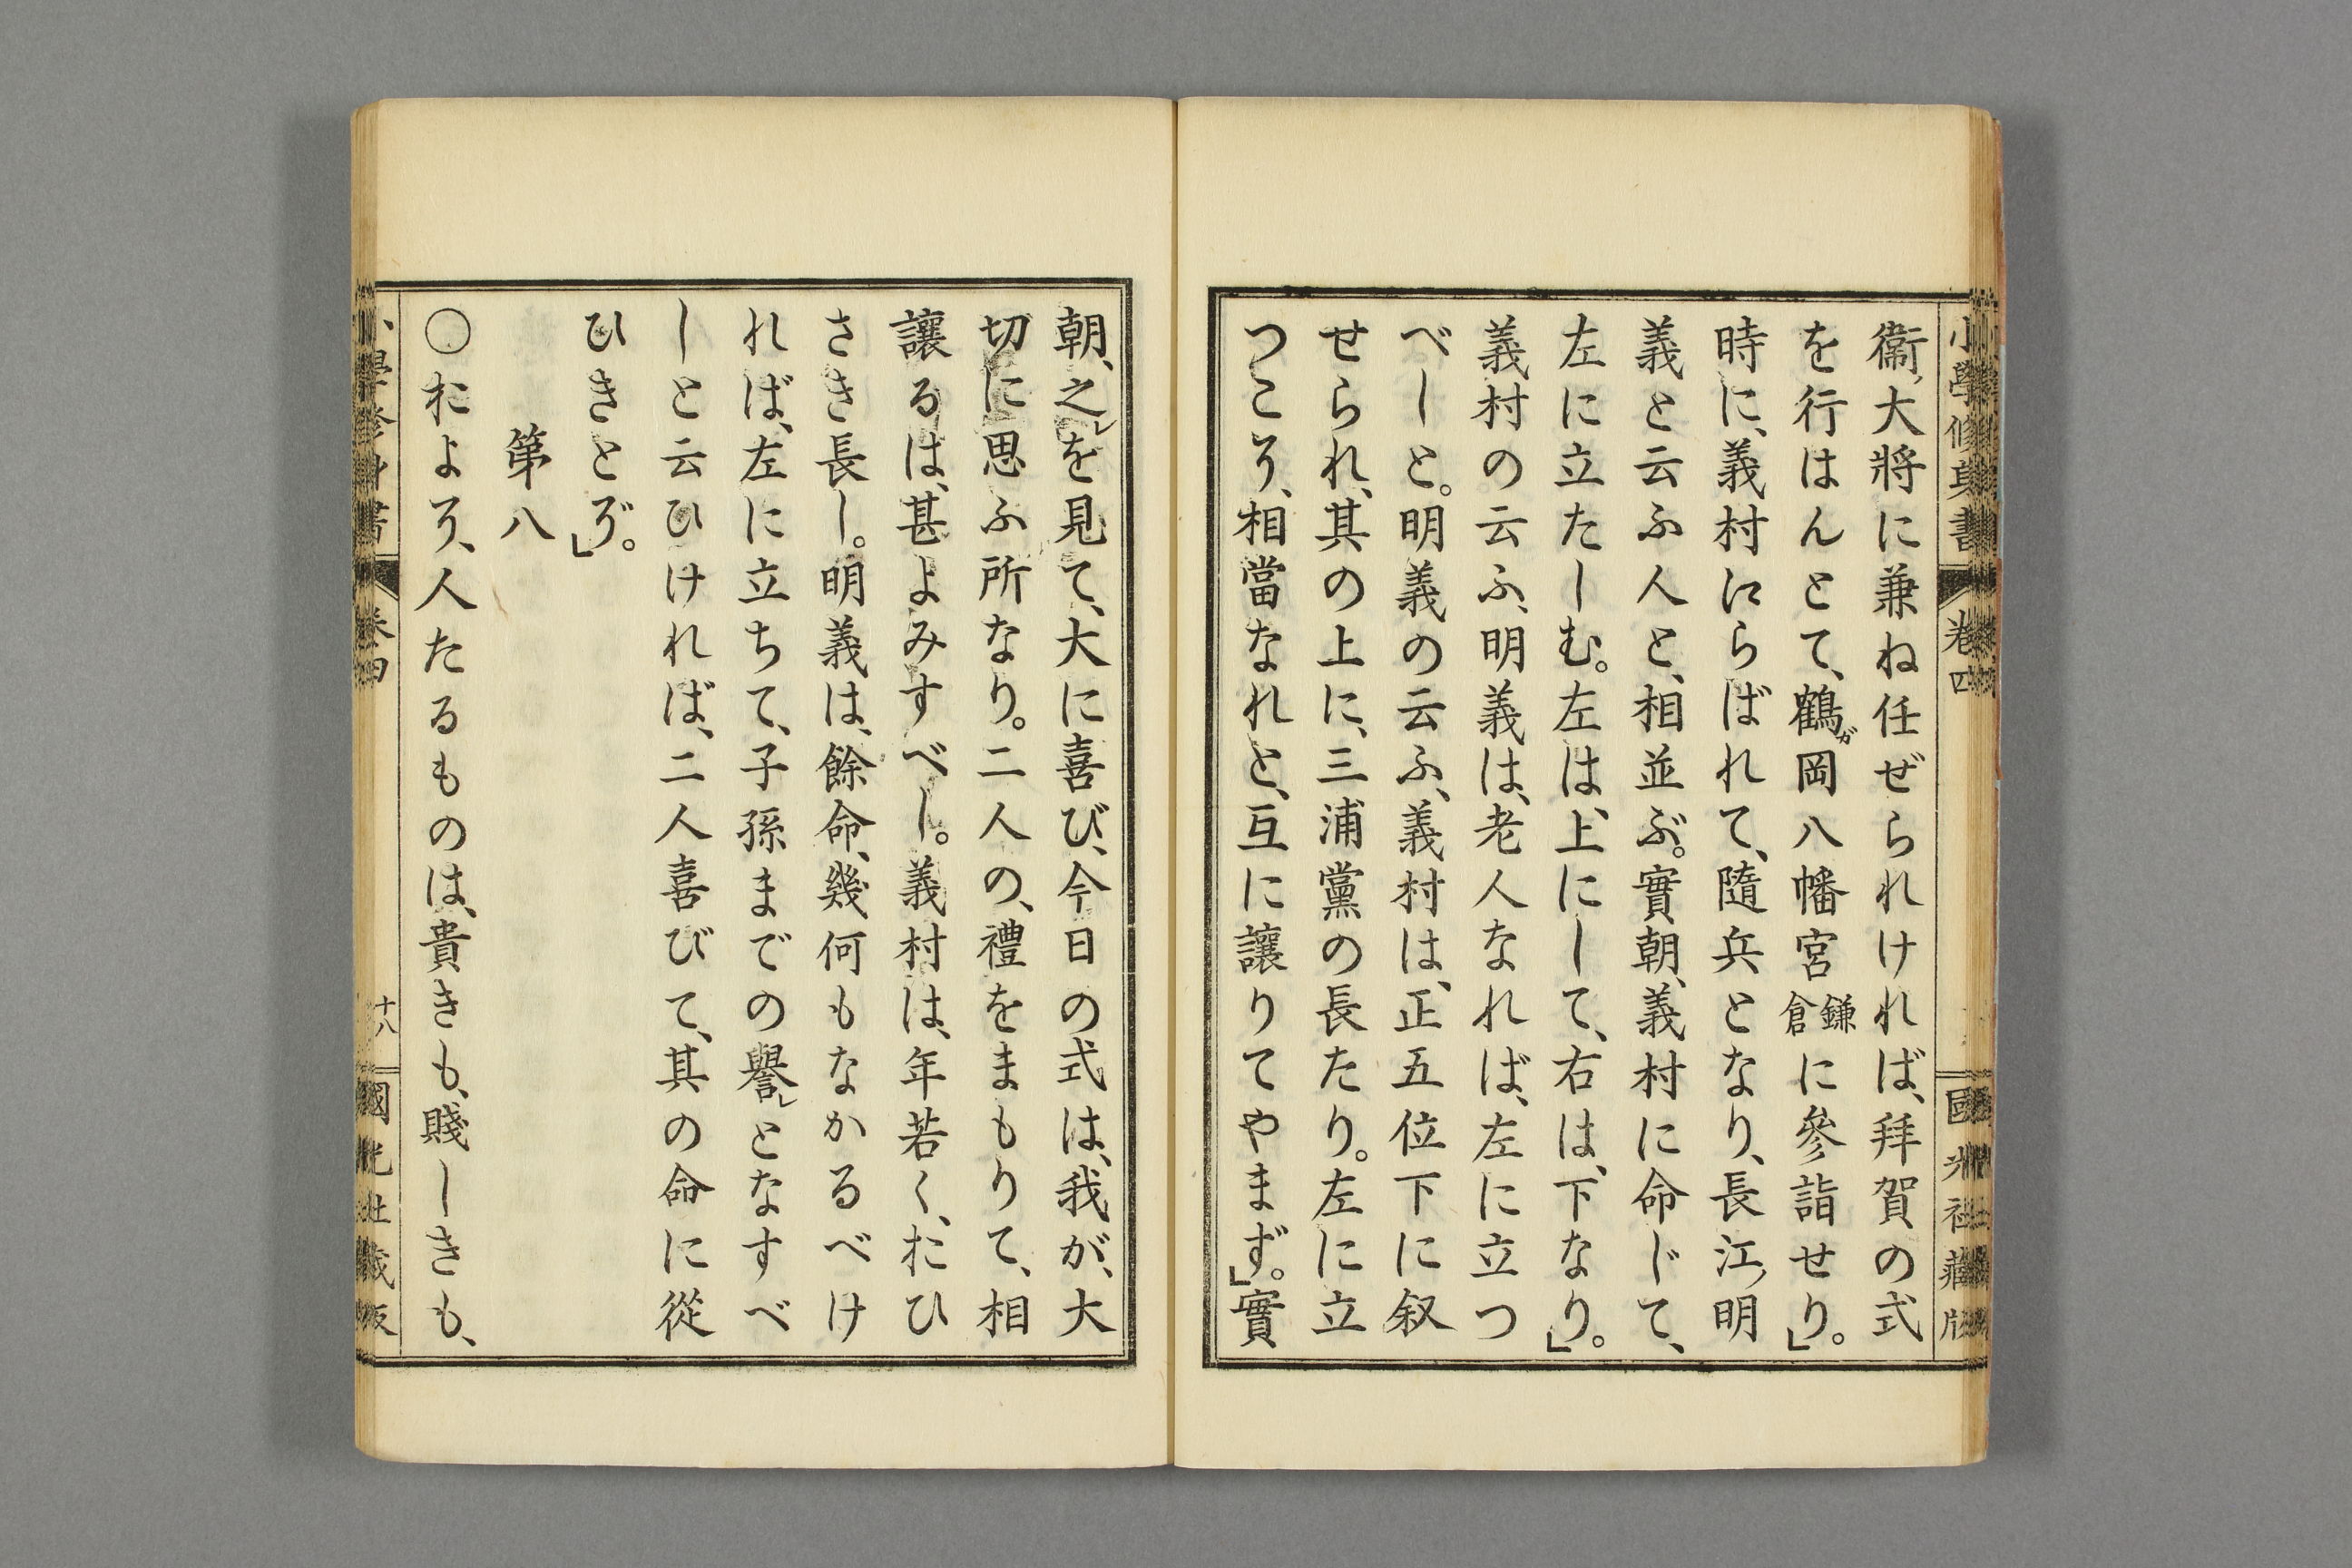 小學修身書 卷四 國光社藏版
衞、大將に兼ね任ぜられければ、拜賀の式
を行はんとて、鶴ガ岡八幡宮鎌倉に參詣せり。」
時に、義村えらばれて、隨兵となり、長江、明
義と云ふ人と、相並ぶ。實朝、義村に命じて、
左に立たしむ。左は、上にして、右は、下なり。」
義村の云ふ、明義は、老人なれば、左に立つ
べしと。明義の云ふ、義村は、正五位下に叙
せられ、其の上に、三浦黨の長たり。左に立
つこそ、相當なれと、互に讓りてやまず。」實
朝、之レを見て、大に喜び、今日の式は、我が、大
切に思ふ所なり。二人の、禮をまもりて、相
讓るは、甚よみすべし。義村は、年若く、おひ
さき長し。明義は、餘命、幾何もなかるべけ
れば、左に立ちて、子孫までの譽レとなすべ
しと云ひければ、二人喜びて、其の命に從
ひきとぞ。」
第八
〇およそ、人たるものは、貴きも、賤しきも、
小學修身書 卷四 十八 國光社藏版